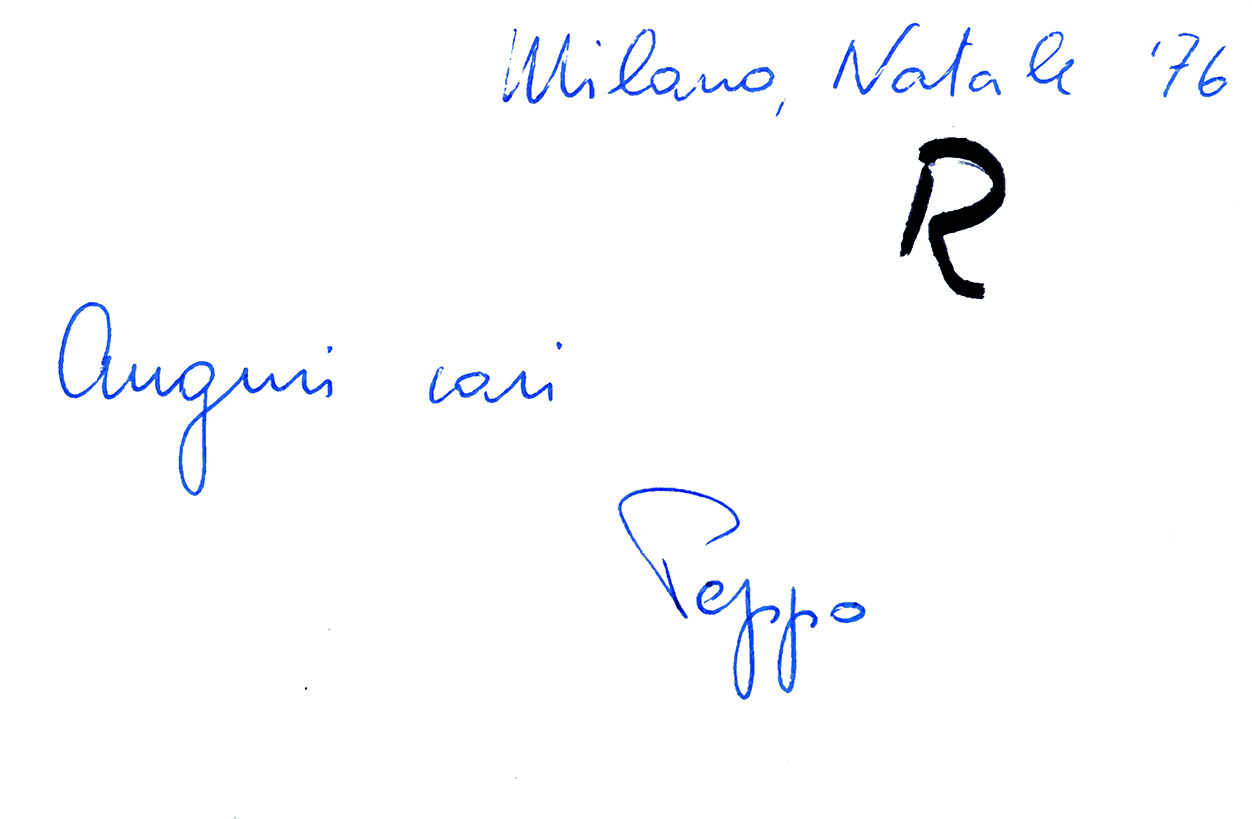 Milano, Natale '76
R
Auguri cari
Peppo